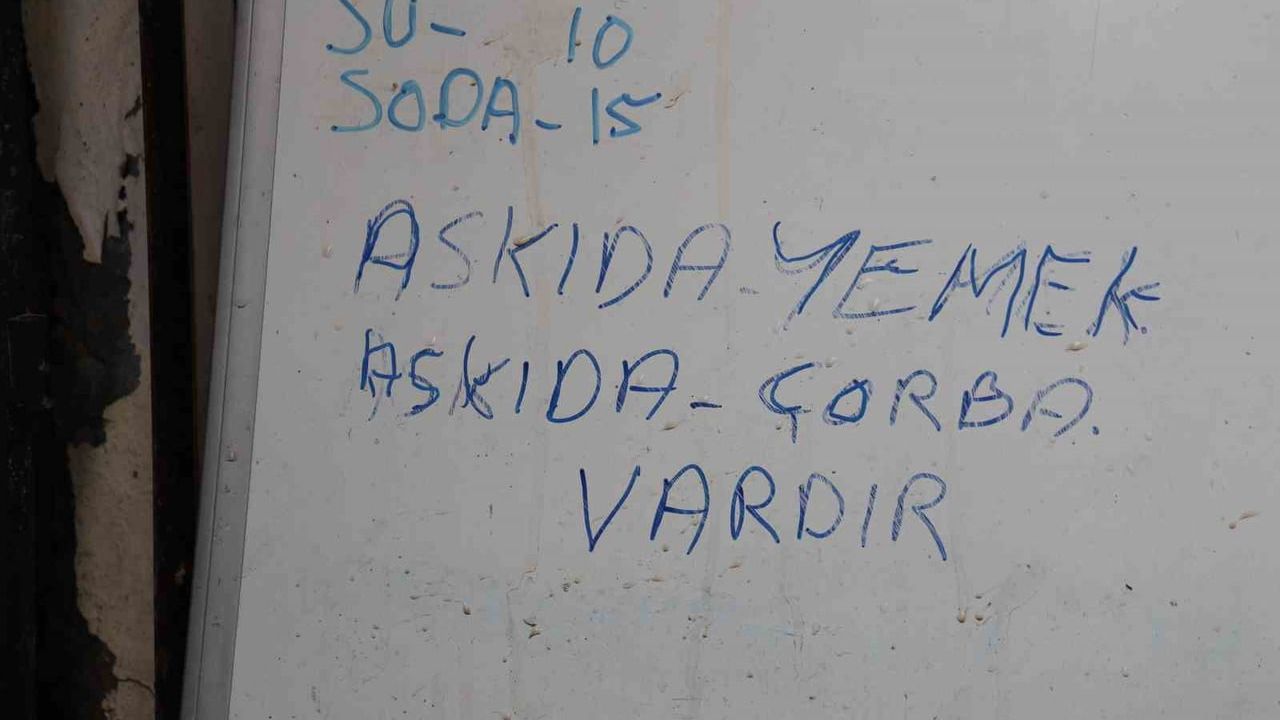 SU- 10
SODA-15
ASKIDA-YEMEK
ASKIDA-ÇORBA.
VARDIR